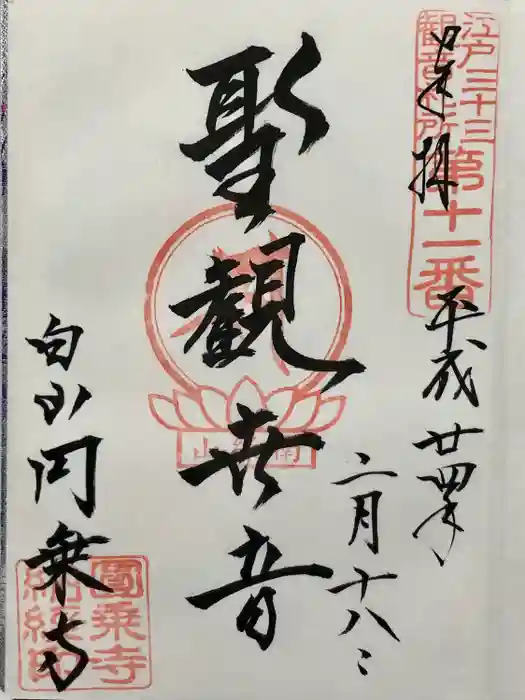 江戸三十三
観音札所
第十一番
奉拝
平成廿四年
二月十八日
聖観世音
白山円乗寺
圓乗寺
納経印